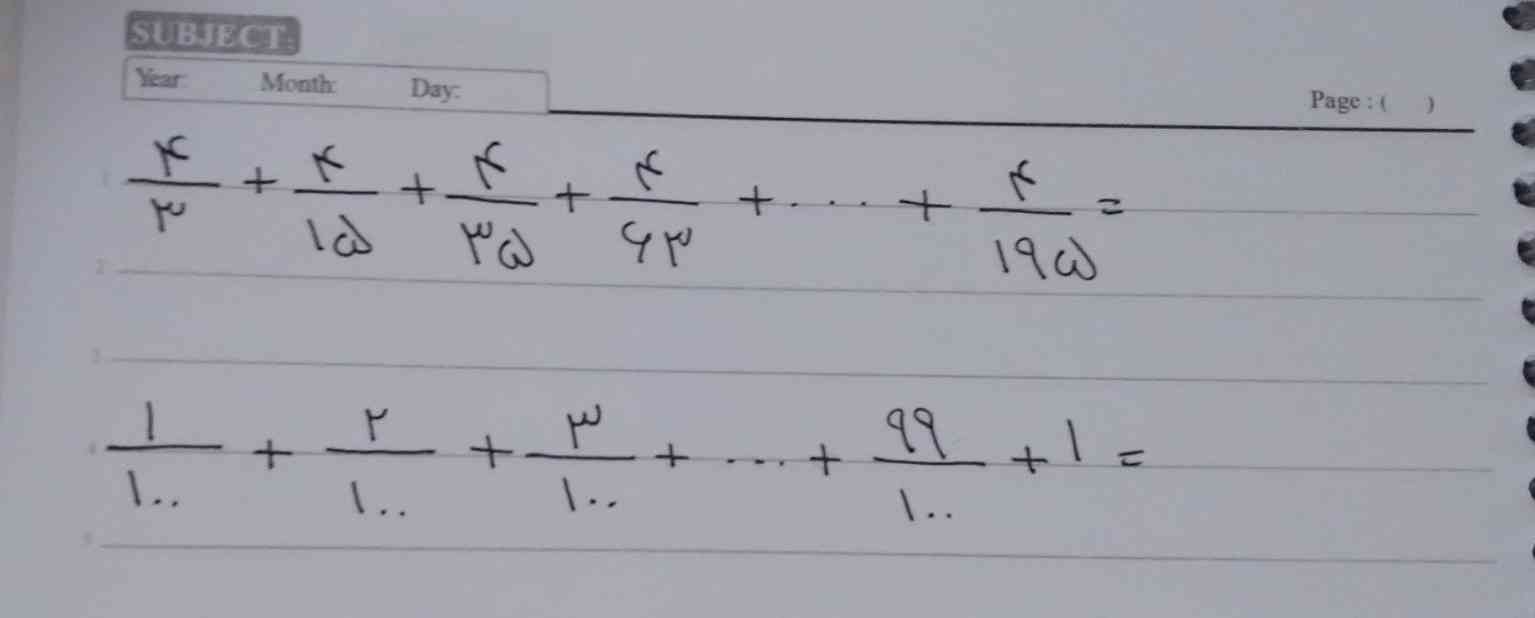 SUBJECT:
Year: Month: Day:
Page : ( )
۴/۳ + ۴/۱۵ + ۴/۳۵ + ۴/۶۳ + .... + ۴/۱۹۵ =
۱/۱۰۰ + ۲/۱۰۰ + ۳/۱۰۰ + .... + ۹۹/۱۰۰ + ۱ =